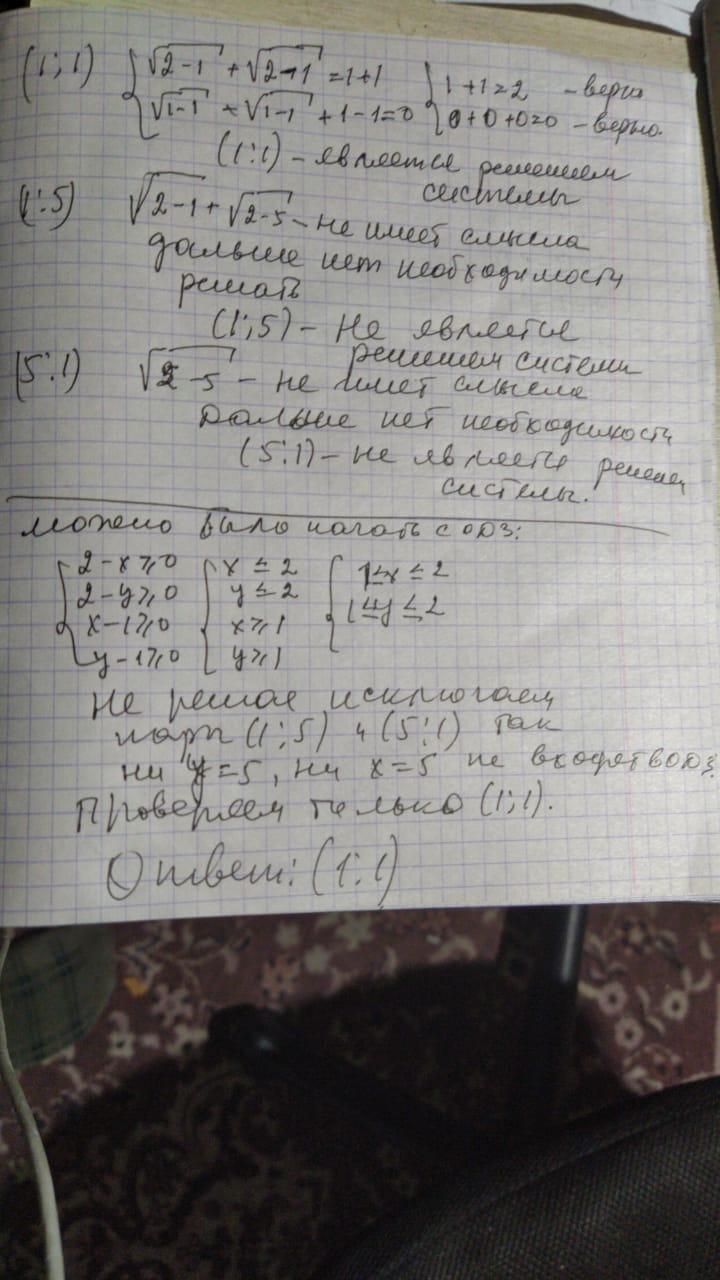 (1;1) { √2-1 + √2-1 = 1+1 { 1+1=2 - верно
√1-1 + √1-1 + 1-1=0 0+0+0=0 - верно.
(1;1) - является решением
системы
(1;5) √2-1 + √2-5 - не имеет смысла
дальше нет необходимости
решать
(1;5) - Не является
решением системы
(5;1) √2-5 - не имеет смысла
Дальше нет необходимости
(5;1) - не является решением
системы.
можно было начать с ОДЗ:
{ 2-x⩾0 { x ≤ 2 { 1≤x ≤ 2
2-y⩾0 y ≤ 2 1≤y ≤ 2
x-1⩾0 x⩾1
y-1⩾0 y⩾1
Не решая исключаем
пары (1;5) и (5;1) так
ни y=5, ни x=5 не входят в ОДЗ.
Проверяем только (1;1).
Ответ: (1;1)